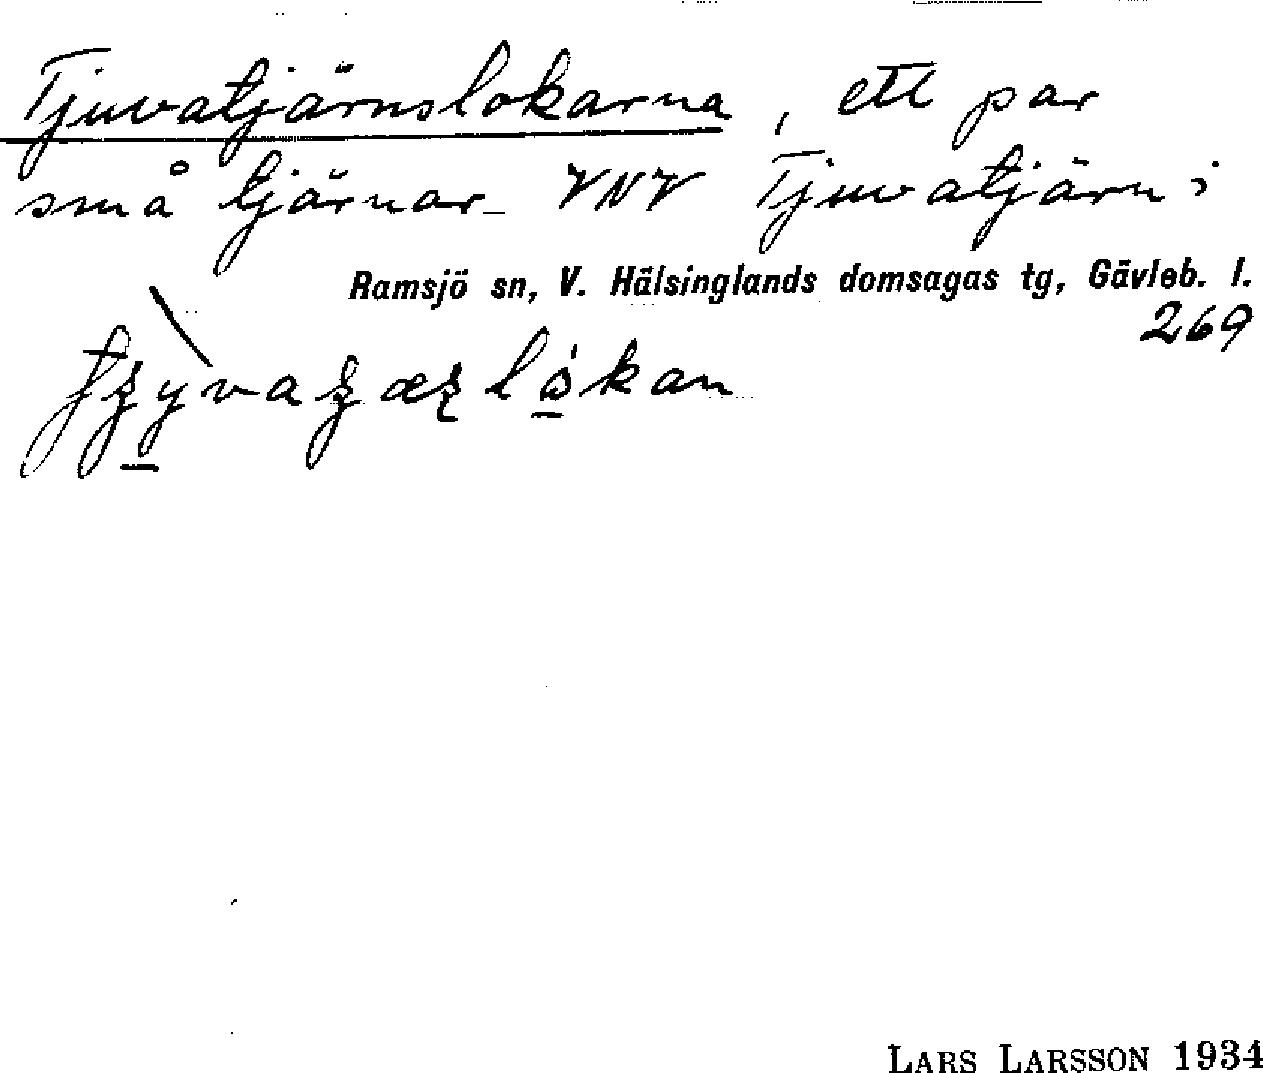 Tjuvatjärnslokarna, ett par
små tjärnar VNV Tjuvatjärn i
Ramsjö sn, V. Hälsinglands domsagas tg, Gävleb. l.
269
LARS LARSSON 1934